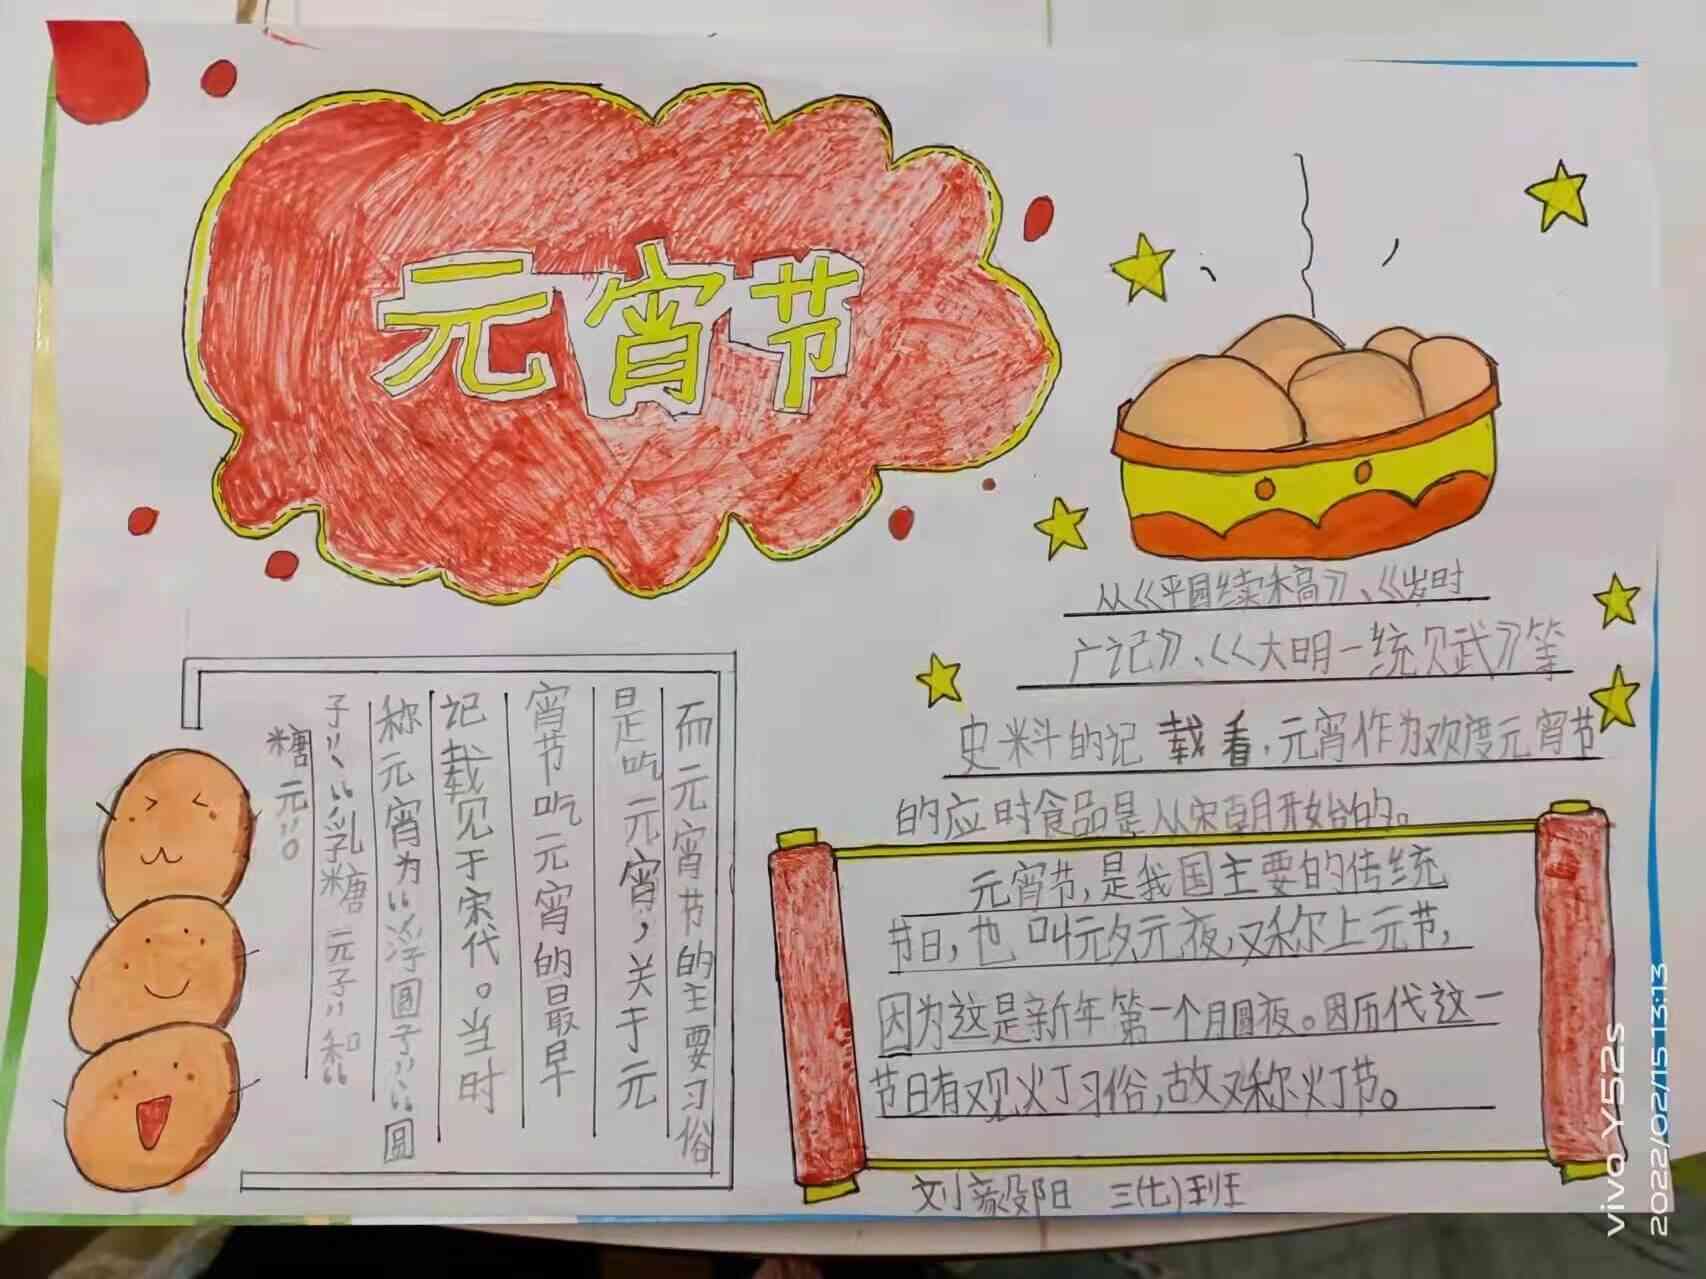 元宵节
从《平园续稿》、《岁时
广记》、《大明一统贝武》等
史料的记载看，元宵作为欢度元宵节
的应时食品是从宋朝开始的。
而元宵节的主要习俗
是吃元宵，关于元
宵节吃元宵的最早
记载见于宋代。当时
称元宵为“浮圆子”“圆
子”、“乳糖元子”和“
糖元”。
元宵节，是我国主要的传统
节日，也叫元夕元夜，又称上元节，
因为这是新年第一个月圆夜。因历代这一
节日有观灯习俗，故又称灯节。
三(七)班
vivo Y52s
2022/02/15 13:13